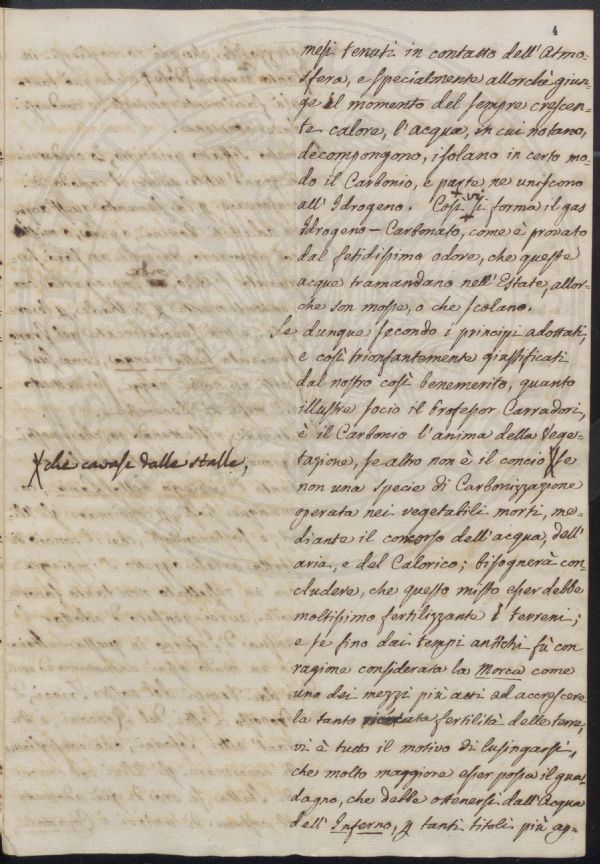 4
mesi tenuti in contatto dell'Atmo=
sfera, e specialmente allorchè giun=
ge il momento del sempre crescen=
te calore, l'acqua, in cui notano,
decompongono, isolano in certo mo=
do il Carbonio, e parte ne uniscono
all'Idrogeno. Così vi si forma il gas
Idrogeno-Carbonato, come è provato
dal fetidissimo odore, che queste
acque tramandano nell'Estate, allor=
che son mosse, o che scolano.
Se dunque secondo i principj adottati,
e così trionfantemente giustificati
dal nostro così benemerito, quanto
illustre socio il Professor Carradori,
è il Carbonio l'anima della Vege=
tazione, se altro non è il concio se
che cavasi dalle stalle,
non una specie di Carbonizzazione
operata nei vegetabili morti, me=
diante il concorso dell'acqua, dell'
aria, e del Calorico; bisognerà con
cludere, che questo misto esser debbe
moltissimo fertilizzante i terreni;
e se fino dai tempi antichi fù con
ragione considerata la Morca come
uno dei mezzi più atti ad accrescere
la tanto fertilità delle terre,
vi è tutto il motivo di lusingarsi,
che molto maggiore esser possa il gua=
dagno, che debbe ottenersi dall'Acqua
dell'Inferno, tanti titoli più ap=